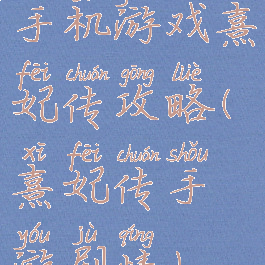 手机游戏熹
fēi chuán gōng lüè
妃传攻略(
xī fēi chuán shǒu
熹妃传手
yóu jù qíng
游剧情)